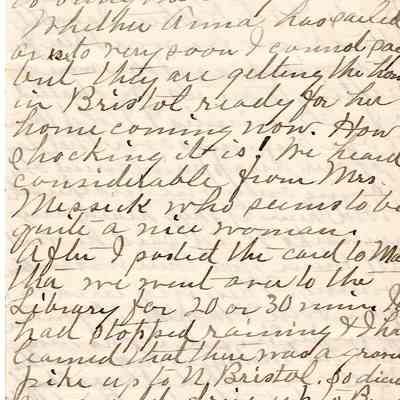 Whether Anna has sailed
or is to very soon I cannot say
but they are getting the hou
in Bristol ready for her
home coming now. How
shocking it is! We heard
considerable from Mrs.
Messick who seems to be
quite a nice woman.
After I posted the card to Ma
tha we went over to the
Library for 20 or 30 min. It
had stopped raining & I ha
learned that there was a
pike up to N. Bristol. So